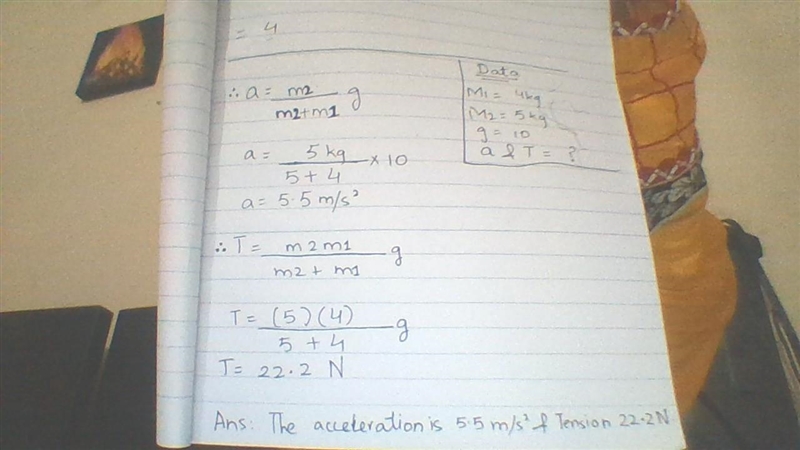 = 4
Data
M1 = 4kg
M2 = 5kg
g = 10
a & T = ?
∴ a = m2 / m2+m1 g
a = 5 kg / 5 + 4 × 10
a = 5.5 m/s²
∴ T = m2 m1 / m2 + m1 g
T = (5)(4) / 5 + 4 g
T = 22.2 N
Ans: The acceleration is 5.5 m/s² & Tension 22.2N